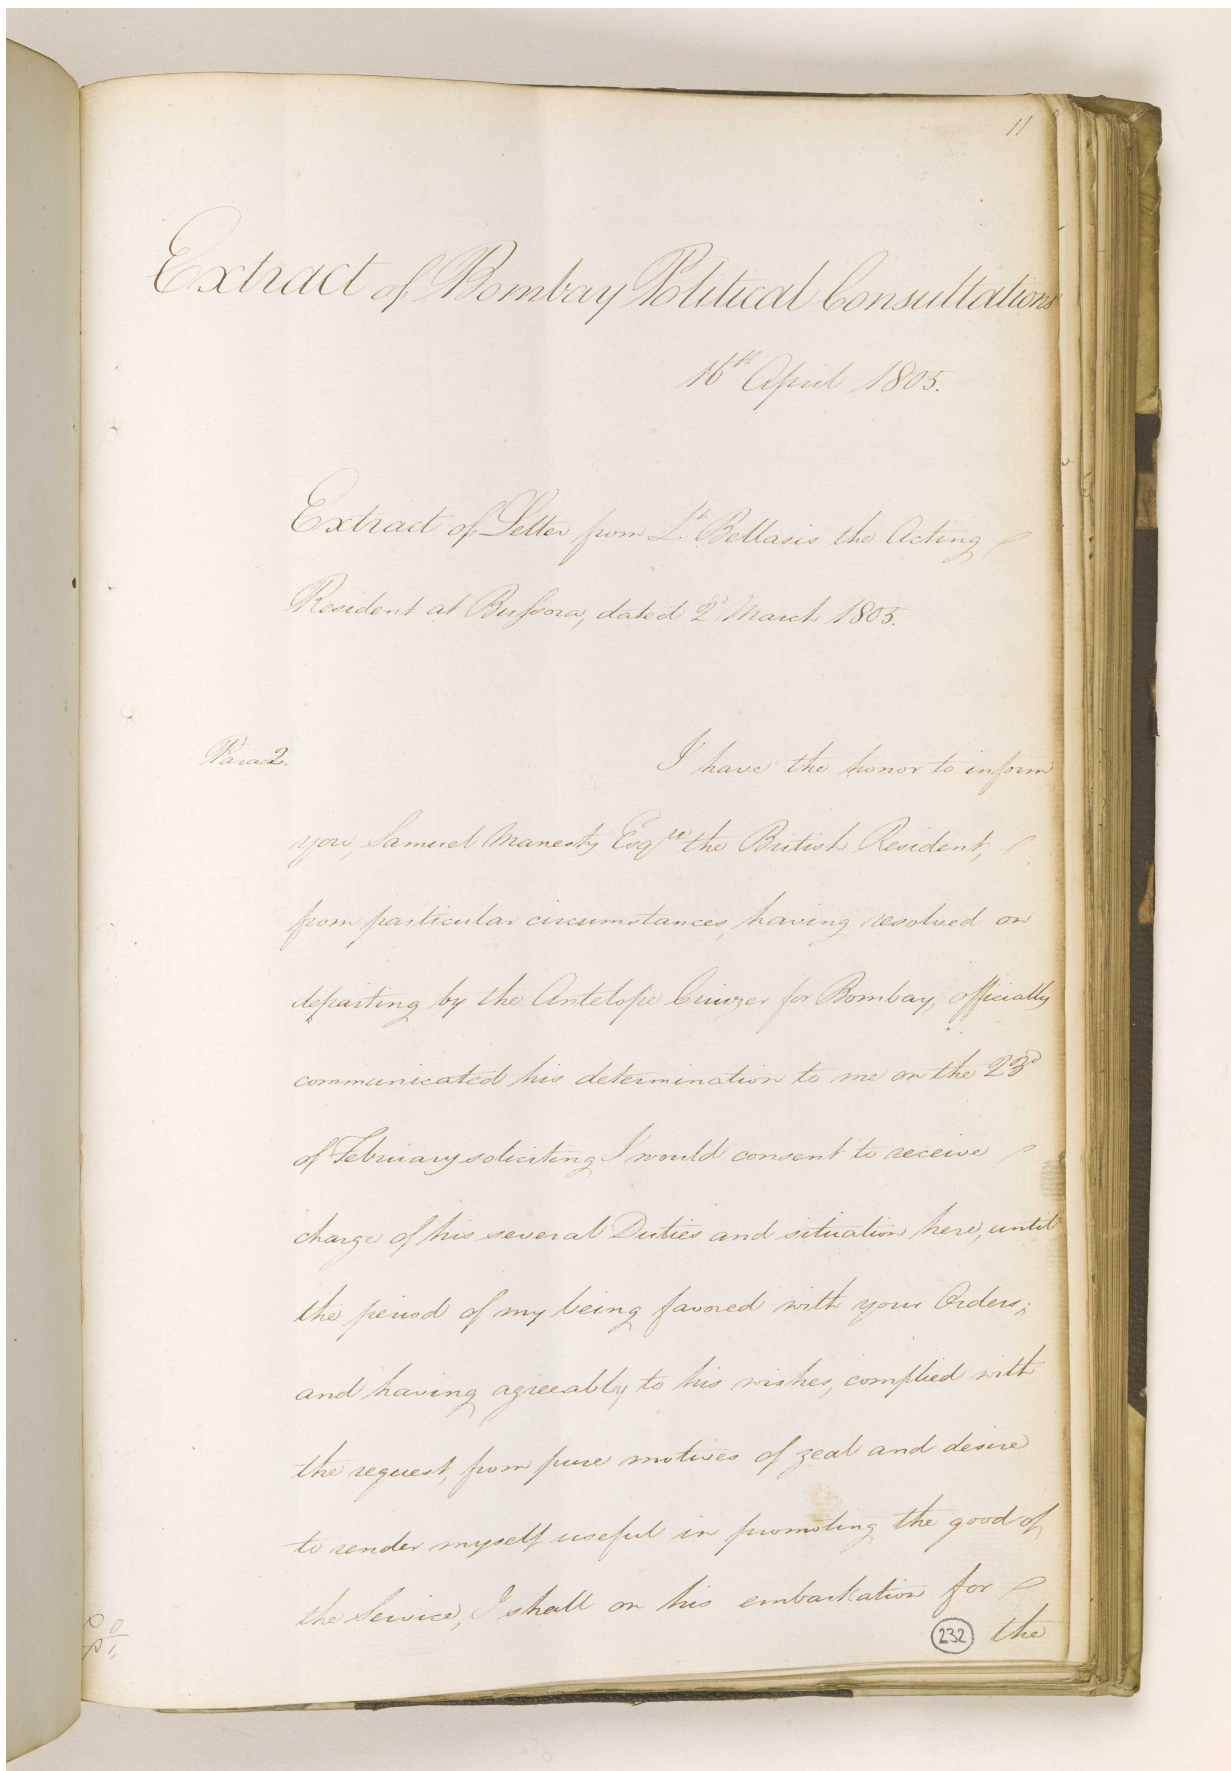 11
Extract of Bombay Political Consultations
16th April 1805.
Extract of Letter from Lt. Bellasis the Acting
Resident at Bussora, dated 2d March 1805.
Para 2. I have the honor to inform
you, Samuel Manesty Esqre the British Resident,
from particular circumstances, having resolved on
departing by the Antelope Cruizer for Bombay, officially
communicated his determination to me on the 23d
of February soliciting I would consent to receive
charge of his several Duties and situation here, until
the period of my being favored with your Orders;
and having agreeably to his wishes, complied with
the request, from pure motives of zeal and desire
to render myself useful in promoting the good of
the Service, I shall on his embarkation for
232 the